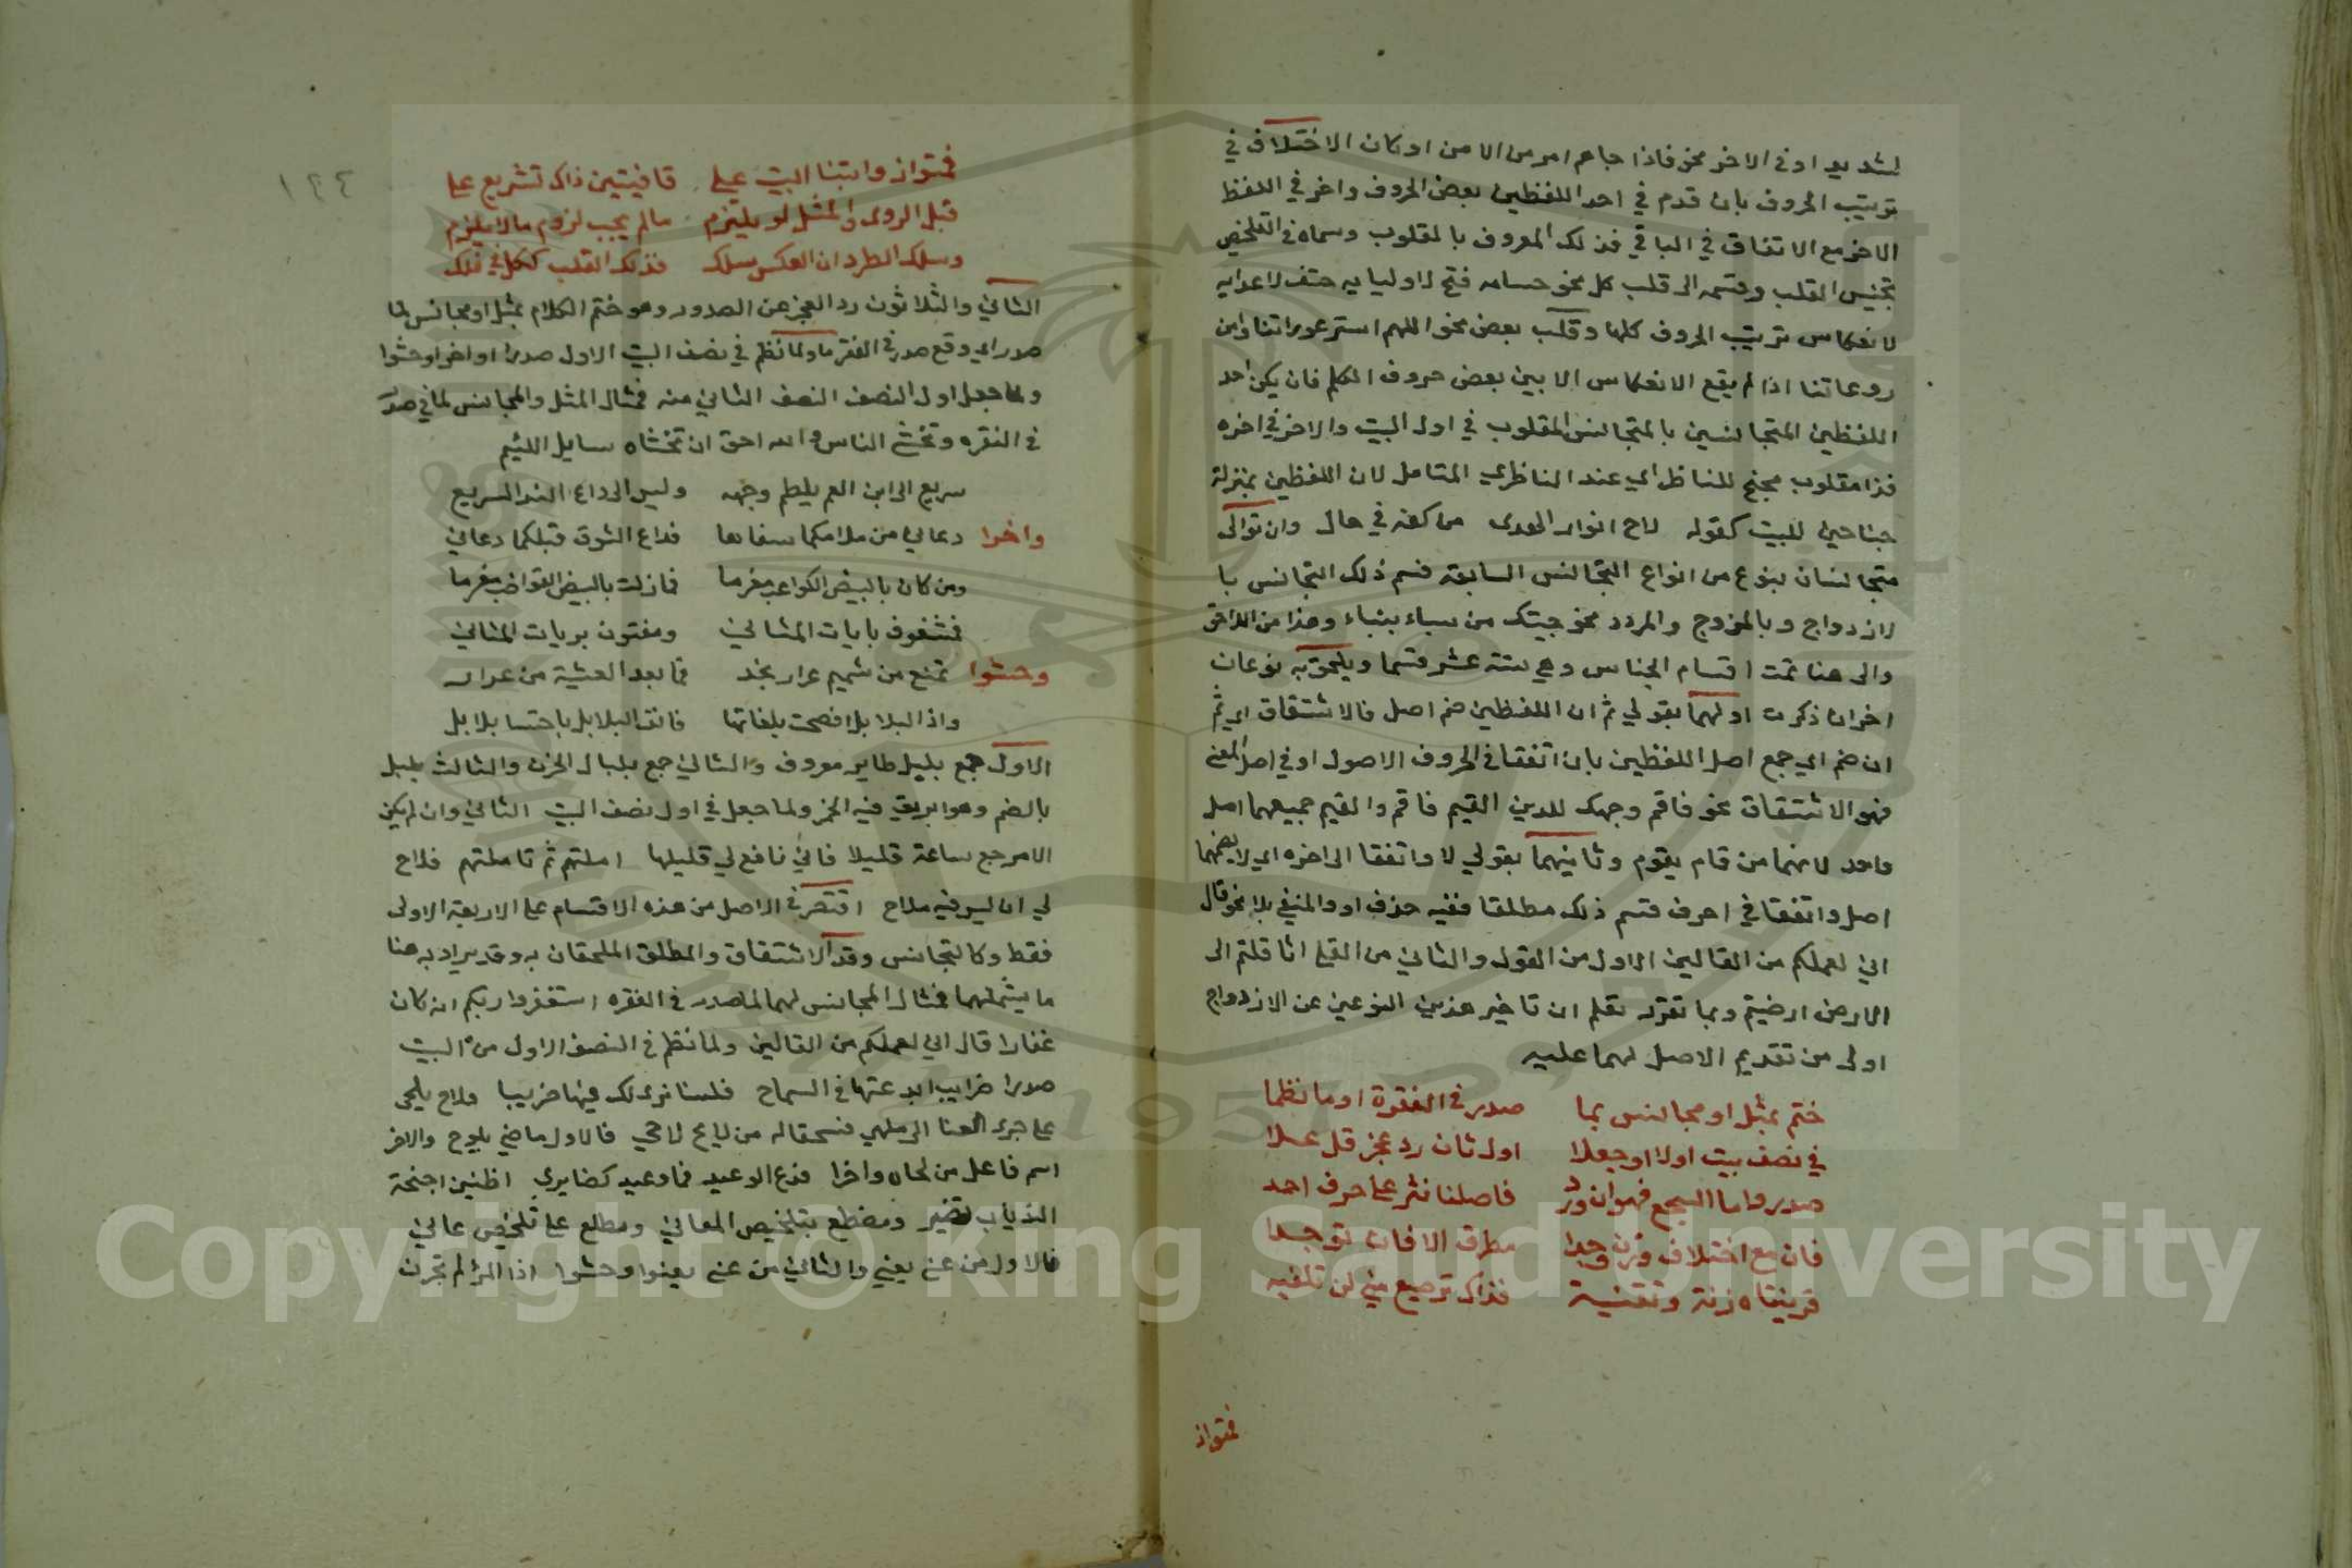 لشديد او في الاخر نحو فاذا جاهم امر من الامن او كان الاختلاف في
ترتيب الحروف بان قدم في احد اللفظين بعض الحروف واخر في اللفظ
الاخر مع الاتفاق في الباقي فذلك المعروف بالمقلوب وسماه في التلخيص
تجنيس القلب وقسمه الى قلب كل نحو حسامه فتح لاوليايه حتف لاعدايه
لانعكاس ترتيب الحروف كلها وقلب بعض نحو اللهم استر عوراتنا وامن
روعاتنا اذا لم يقع الانعكاس الا بين بعض حروف الكلم فان يكن احد
اللفظين المتجانسين بالمتجانس المقلوب في اول البيت والاخر في اخره
فذا مقلوب مجنح للناظر اي عند الناظري المتامل لان اللفظين بمنزلة
جناحين للبيت كقوله لاح انوار الهدى من كفه في حال وان توالى
متجانسان بنوع من انواع التجانس السابقة فسم ذلك التجانس با
لازدواج وبالمزدوج والمردد نحو جيتك من سباء بنباء وهذا من اللاحق
والى هنا تمت اقسام الجناس وهي ستة عشر قسما ويلحق به نوعان
اخران ذكرت اولهما بقولي ثم ان اللفظين ضم اصل فالاشتقاق اي ثم
ان ضم اي جمع اصل اللفظين بان اتفقا في الحروف الاصول او في اصل المعنى
فهو الاشتقاق نحو فاقم وجهك للدين القيم فاقم والقيم جميعهما اصل
واحد لانهما من قام يقوم وثانيهما بقولي لا واتفقا الى اخره اي لا يضمهما
اصل واتفقا في احرف فسم ذلك مطلقا ففيه حذف او والمنفي بلا نحو قال
اني لعملكم من القالين الاول من القول والثاني من القلى اثاقلتم الى
الارض ارضيتم وبما تقرر تعلم ان تاخير هذين النوعين عن الازدواج
اولى من تقديم الاصل لهما عليه
ختم بمثل او مجانس بما صدر في الفقرة او ما نظما
في نصف بيت اولا او جعلا اول ثان رد عجز قل علا
صدر واما السجع فهو ان ورد فاصلتا نثر على حرف احد
فان مع اختلاف وزن وجدا مطرف الا فان توجدا
قرينتاه زنة وتقفية فذاك ترصيع مني لن تلفيه
فمتواز
١٢٤
فمتواز وابتنا البيت على قافيتين ذاك تشريع علي
قبل الروى والمثل لو يلتزم مالم يجب لزوم مالا يلزم
وسلك الطرد ان العكس سلك فذلك القلب ككل في فلك
الثاني والثلاثون رد العجز عن الصدور وهو ختم الكلام بمثل او مجانس لما
صدر اي وقع صدر في الفقرة او لما نظم في نصف البيت الاول صدرا او اخرا وحشوا
ولما جعل اول النصف النصف الثاني منه فمثال المثل والمجانس لما في صدر
في الفقره وتخشى الناس والله احق ان تخشاه سايل اللئيم
سريع الى ابن العم يلطم وجهه وليس الى داع الندا لسريع
واخرا دعاني من ملامكما سفاها فداع الشوق قبلكما دعاني
ومن كان بالبيض الكواعب مغرما فما زلت بالبيض القواضب مغرما
فمشغوف بايات المثاني ومفتون بريات المثاني
وحشوا تمتع من شميم عرار نجد فما بعد العشية من عرار
واذا البلابل افصحت بلغاتها فانف البلابل باحتسا بلابل
الاول جمع بلبل طاير معروف والثاني جمع بلبال الحزن والثالث بلبل
بالضم وهو ابريق فيه الخمر ولما جعل في اول نصف البيت الثاني وان لم يكن
الا مرجع ساعة قليلا فاني نافع لي قليلها املتهم ثم تاملتهم فلاح
لي ان ليس فيهم فلاح اقتصر في الاصل من هذه الاقسام على الاربعة الاولى
فقط وكالتجانس وقد الاشتقاق والمطلق الملحقان به وقد يراد به هنا
ما يشملهما فمثال المجانس لهما لما صدر في الفقره استغفروا ربكم انه كان
غفارا قال اني لعملكم من القالين ولما نظم في النصف الاول من البيت
صدرا ضرايب ابدعتها في السماح فلسنا نرى لك فيها ضريبا ولاح يلحى
على جرى العنا الى ملهى فسحقا له من لايح لاحي فالاول ماضي يلوح والاخر
اسم فاعل من لحاه واخرا فدع الوعيد فما وعيدك ضايري اطنين اجنحة
الذباب يضير ومضطلع بتلخيص المعاني ومطلع على تلخيص عاني
فالاول من عنى يعني والثاني من عنى يعنوا وحشوا اذا المرء لم يخزن
Copyright © King Saud University
1957